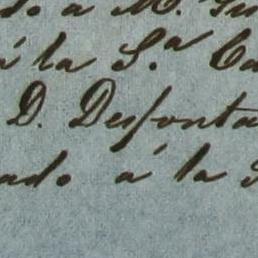 do a M.
á la S.ª Ca
D. Desfonta
ado á la